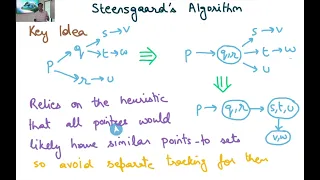 Steensgaard's Algorithm
Key Idea
p → q → s → v
t → w
r → u
⇒
p → q,r → s → v
t → w
u
⇓
p → q,r → s,t,u
v,w
Relies on the heuristic
that all pointees would
likely have similar points-to sets
so avoid separate tracking for them